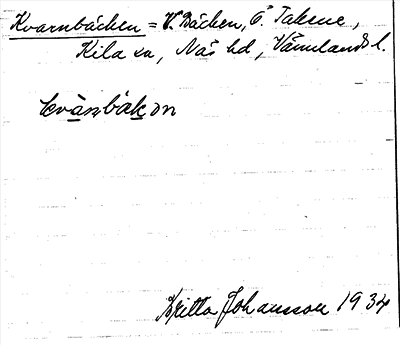 Kvarnbäcken = V. Bäcken, Ö. Takene,
Kila sn, Näs hd, Värmlands l.
kvànbäkən
Britta Johansson 1934